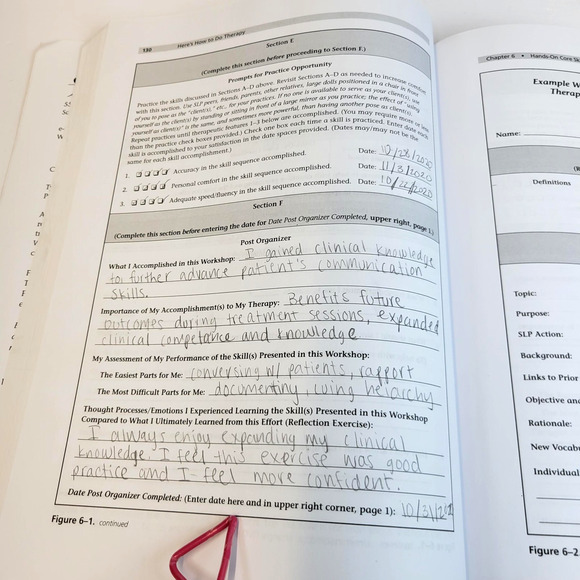 130 Here's How to Do Therapy
Section E
(Complete this section before proceeding to Section F.)
Prompts for Practice Opportunity
Practice the skills discussed in Sections A–D above. Revisit Sections A–D as needed to increase comfort
with this section. Use SLP peers, friends, parents, other relatives, large dolls positioned in a chair in front
of you to pose as the "client(s)," etc., for your practices. If no one is available to serve as your client(s), use
yourself as the client(s) by standing or sitting in front of a large mirror as you practice; the effect of "using
yourself as client(s)" is the same, and sometimes more powerful, than having another pose as client(s).
Repeat practices until therapeutic features 1–3 below are accomplished. (You may require more or less
than the practice check boxes provided.) Check one box each time a skill is practiced. Enter date each
skill is accomplished to your satisfaction in the date spaces provided. (Dates may/may not be the
same for each skill accomplishment.)
1. Accuracy in the skill sequence accomplished. Date: 10/28/2020
2. Personal comfort in the skill sequence accomplished. Date: 11/3/2020
3. Adequate speed/fluency in the skill sequence accomplished. Date: 10/2/2020
Section F
(Complete this section before entering the date for Date Post Organizer Completed, upper right, page 1.)
Post Organizer
What I Accomplished in this Workshop: I gained clinical knowledge
to further advance patient's communication
skills.
Importance of My Accomplishment(s) to My Therapy: Benefits future
outcomes during treatment sessions, expanded
clinical competance and knowledge
My Assessment of My Performance of the Skill(s) Presented in this Workshop:
The Easiest Parts for Me: conversing w/ patients, rapport
The Most Difficult Parts for Me: documenting, cuing heiarchy
Thought Processes/Emotions I Experienced Learning the Skill(s) Presented in this Workshop
Compared to What I Ultimately Learned from this Effort (Reflection Exercise):
I always enjoy expanding my clinical
knowledge. I feel this exercise was good
practice and I feel more confident.
Date Post Organizer Completed: (Enter date here and in upper right corner, page 1): 10/31/202
Figure 6–1. continued
Chapter 6 • Hands-On Core Sk
Example W
Therap
Name:
Definitions
Topic:
Purpose:
SLP Action:
Background:
Links to Prior
Objective and
Rationale:
New Vocab
Individual
Figure 6–2